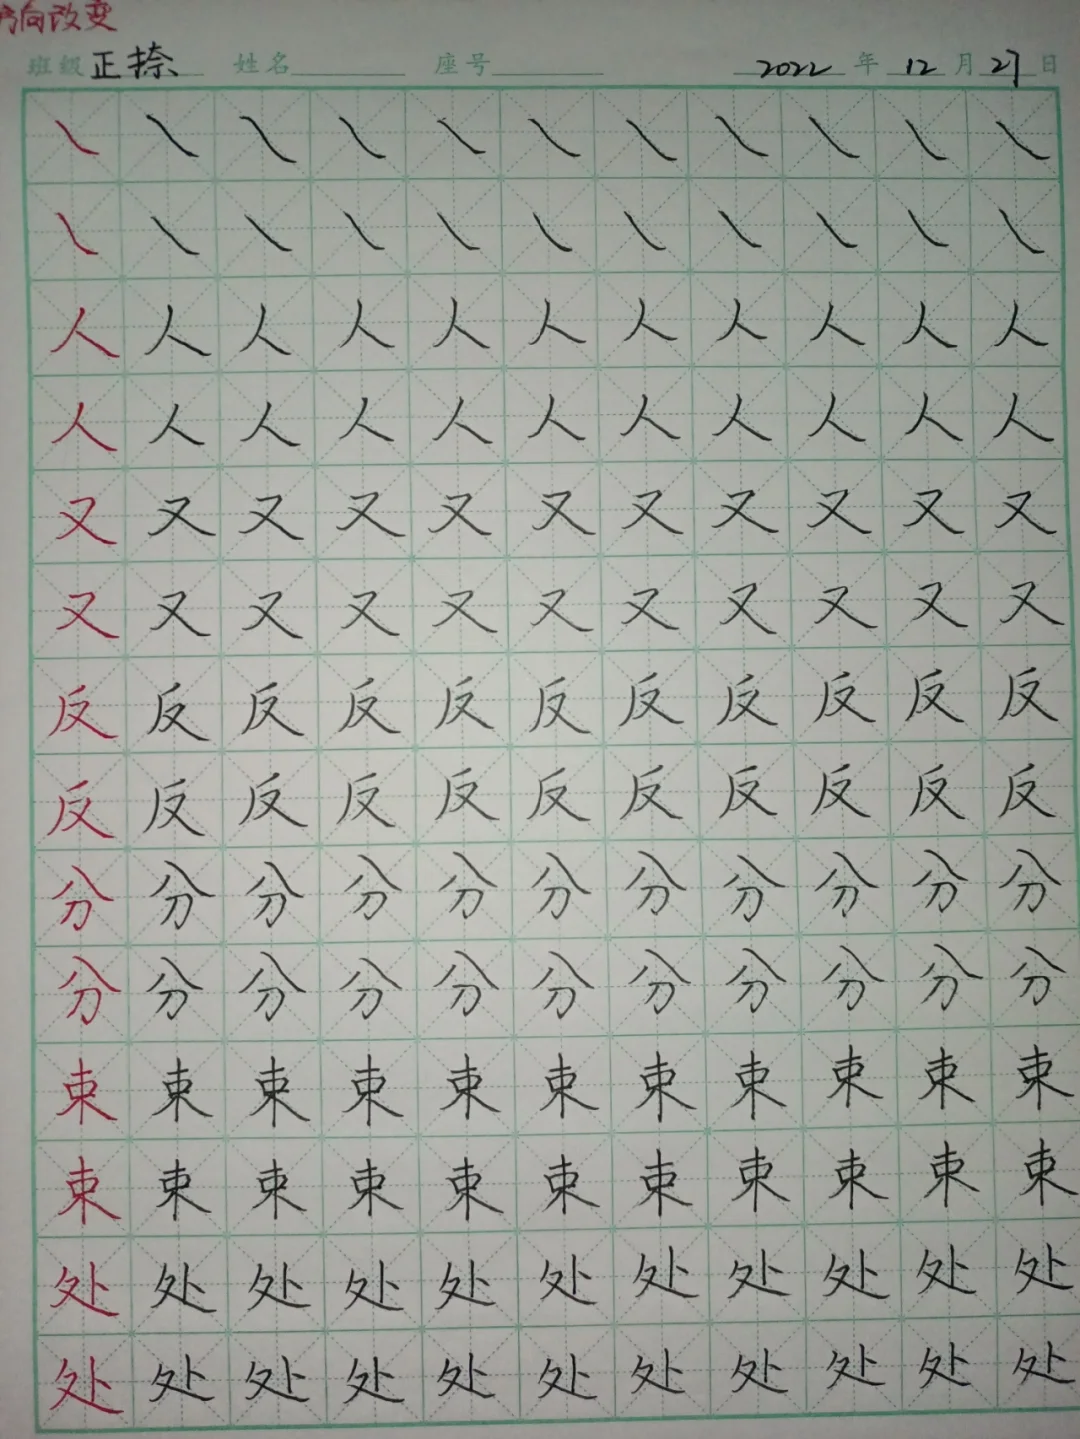 方向改变
班级 正捺 姓名 座号 2022 年 12 月 27 日
㇏ ㇏ ㇏ ㇏ ㇏ ㇏ ㇏ ㇏ ㇏ ㇏ ㇏
㇏ ㇏ ㇏ ㇏ ㇏ ㇏ ㇏ ㇏ ㇏ ㇏ ㇏
人 人 人 人 人 人 人 人 人 人 人
人 人 人 人 人 人 人 人 人 人 人
又 又 又 又 又 又 又 又 又 又 又
又 又 又 又 又 又 又 又 又 又 又
反 反 反 反 反 反 反 反 反 反 反
反 反 反 反 反 反 反 反 反 反 反
分 分 分 分 分 分 分 分 分 分 分
分 分 分 分 分 分 分 分 分 分 分
束 束 束 束 束 束 束 束 束 束 束
束 束 束 束 束 束 束 束 束 束 束
处 处 处 处 处 处 处 处 处 处 处
处 处 处 处 处 处 处 处 处 处 处